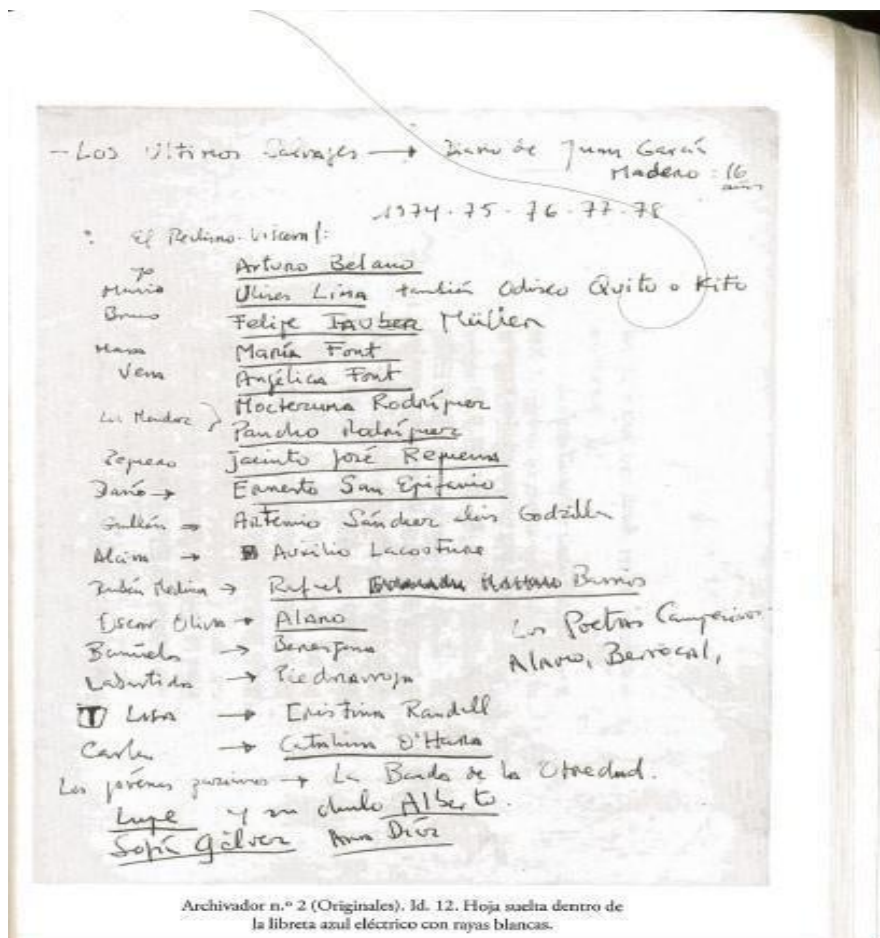 - Los Últimos Salvajes → Diario de Juan García
Madero : 16
años
1974 - 75 - 76 - 77 - 78
: El Realismo-Visceral:
yo Arturo Belano
Mario Ulises Lima también Odiseo Quito o Kito
Bruno Felipe Müller
Mara María Font
Vera Angélica Font
Los Mendez } Moctezuma Rodríguez
Pancho Rodríguez
Requena Jacinto José Requena
Darío → Ernesto San Epifanio
Guillén → Artemio Sánchez alias Godzilla
Alcira → Auxilio Lacouture
Rubén Medina → Rafael Barrios
Oscar Oliva → Alamo
Los Poetas Campesinos
Bañuelos →
Alamo, Berrocal,
Labastida → Piedrarroja
Lisa → Cristina Randall
Carla → Catalina O'Hara
Los jóvenes → La Banda de la Otredad.
Lupe y su chulo Alberto.
Sofía Gálvez Ana Díaz
Archivador n.º 2 (Originales). Id. 12. Hoja suelta dentro de
la libreta azul eléctrico con rayas blancas.